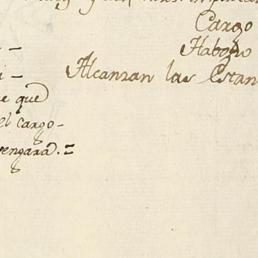 Cargo
Habono
Alcanzan las Estan
e que
el cargo-
vengara.=